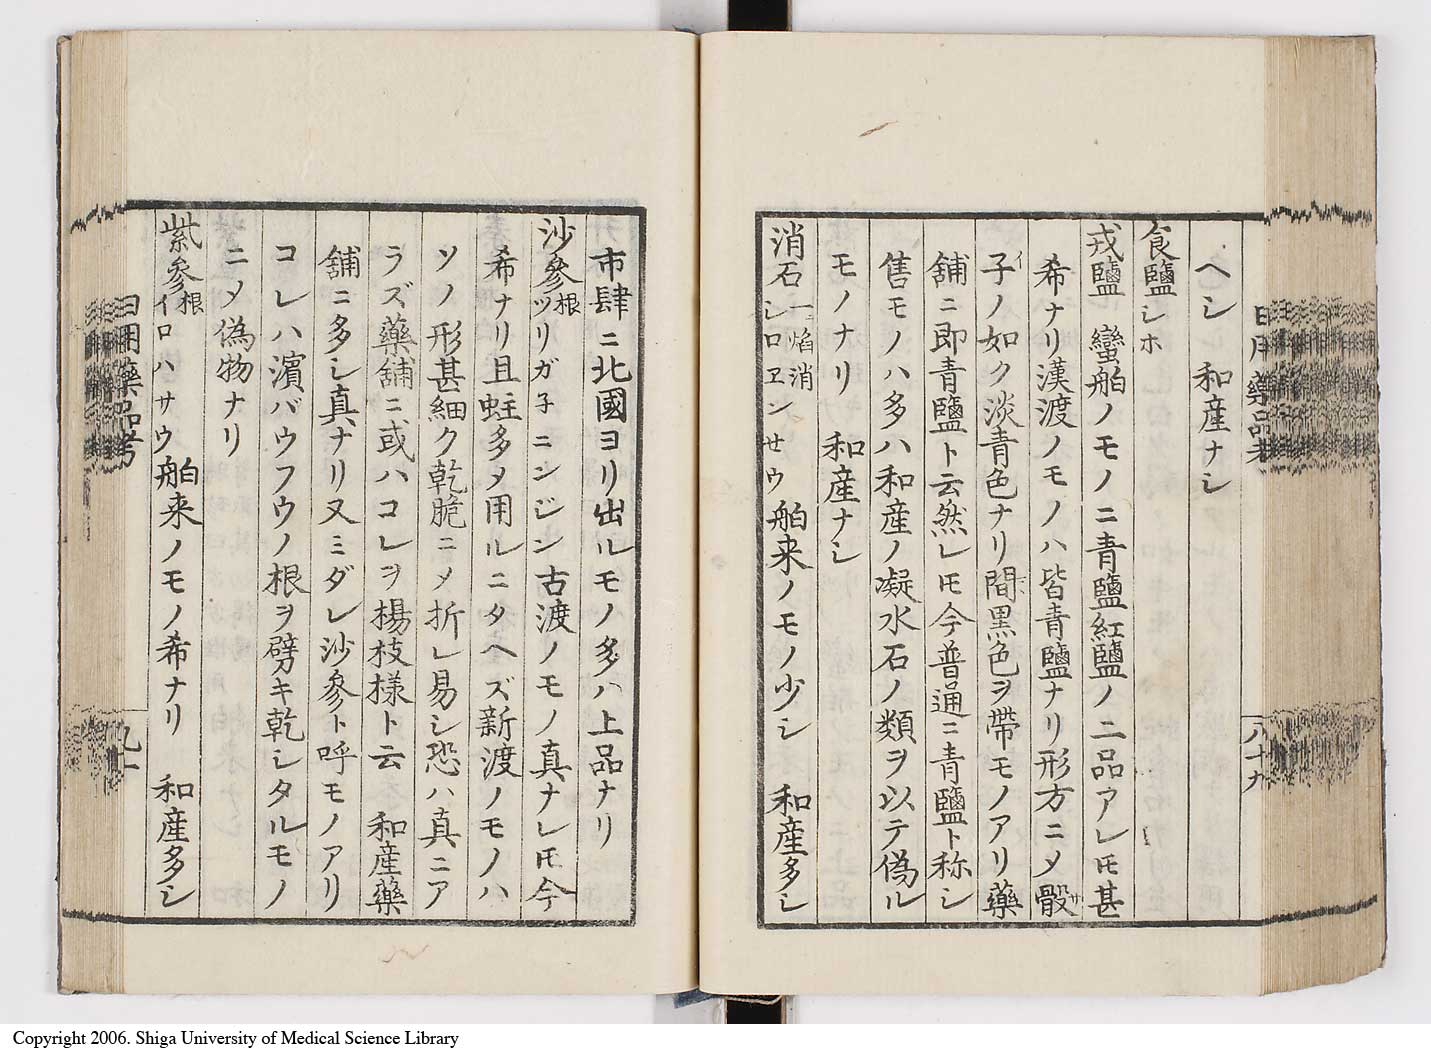 日用藥品考
八十九
ヘシ 和産ナシ
食鹽 シホ
戎鹽 蠻舶ノモノニ青鹽紅鹽ノ二品アレ𪜈甚
希ナリ漢渡ノモノハ皆青鹽ナリ形方ニ〆骰サ
子イノ如ク淡青色ナリ間黒色ヲ帶モノアリ藥
舗ニ即青鹽ト云然レ𪜈今普通ニ青鹽ト称シ
售モノハ多ハ和産ノ凝水石ノ類ヲ以テ偽ル
モノナリ 和産ナシ
消石 一焔消 シロヱンせウ 舶来ノモノ少シ 和産多シ
市肆ニ北國ヨリ出ルモノ多ハ上品ナリ
沙參根 ツリガ子ニンジン 古渡ノモノ真ナレ𪜈今
希ナリ且蛀多〆用ルニタヘズ新渡ノモノハ
ソノ形甚細ク乾脆ニ〆折レ易シ恐ハ真ニア
ラズ藥舗ニ或ハコレヲ楊枝様ト云 和産藥
舗ニ多シ真ナリ又ミダレ沙參ト呼モノアリ
コレハ濱バウフウノ根ヲ劈キ乾シタルモノ
ニ〆偽物ナリ
紫參根 イロハサウ 舶来ノモノ希ナリ 和産多シ
日用藥品考
九十
Copyright 2006. Shiga University of Medical Science Library